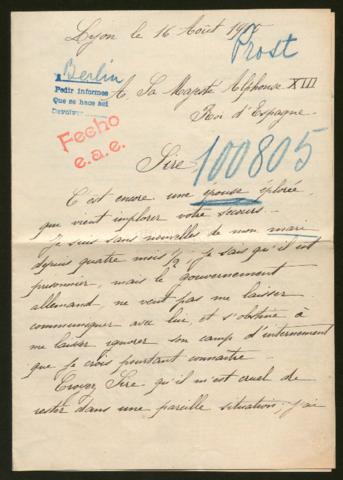 Lyon le 16 Août 1915
Prost
Berlin
Pedir informes
Que se hace así
Devolver
A Sa Majesté Alphonse XIII
Roi d'Espagne.
Fecho
e.a.e.
Sire
100805
C'est encore une épouse éplorée
que vient implorer votre secours.
Je suis sans nouvelles de mon mari
depuis quatre mois ½, je sais qu'il est
prisonnier, mais le gouvernement
allemand ne veut pas me laisser
communiquer avec lui, et s'obstine à
me laisser ignorer son camp d'internement
que je crois pourtant connaître.
Croyez, Sire qu'il m'est cruel de
rester dans une pareille situation, j'ai